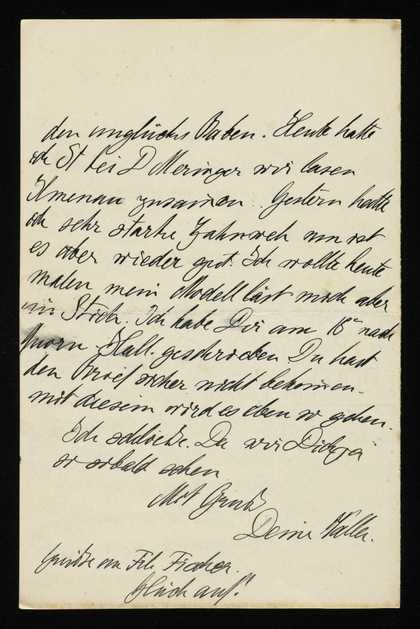 den unglücks Raben. Heute hatte
ich St bei D Meringer wir lasen
Ilmenau zusamen. Gestern hatte
ich sehr starke Zahnweh nun ist
es aber wieder gut. Ich wollte heute
malen mein Modell läst mich aber
im Stich. Ich habe Dir am 18 nach
geschrieben Du hast
den Brief sicher nicht bekomen.
mit diesem wird es eben so gehen.
Ich schließe. Da wir
so sobald sehen
Mit Gruß
Deine
Grüße an Frl. Fischer.
Glück auf!